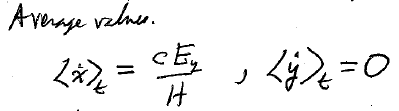 Average values.
⟨ẋ⟩ₜ = cE_y/H , ⟨ẏ⟩ₜ = 0